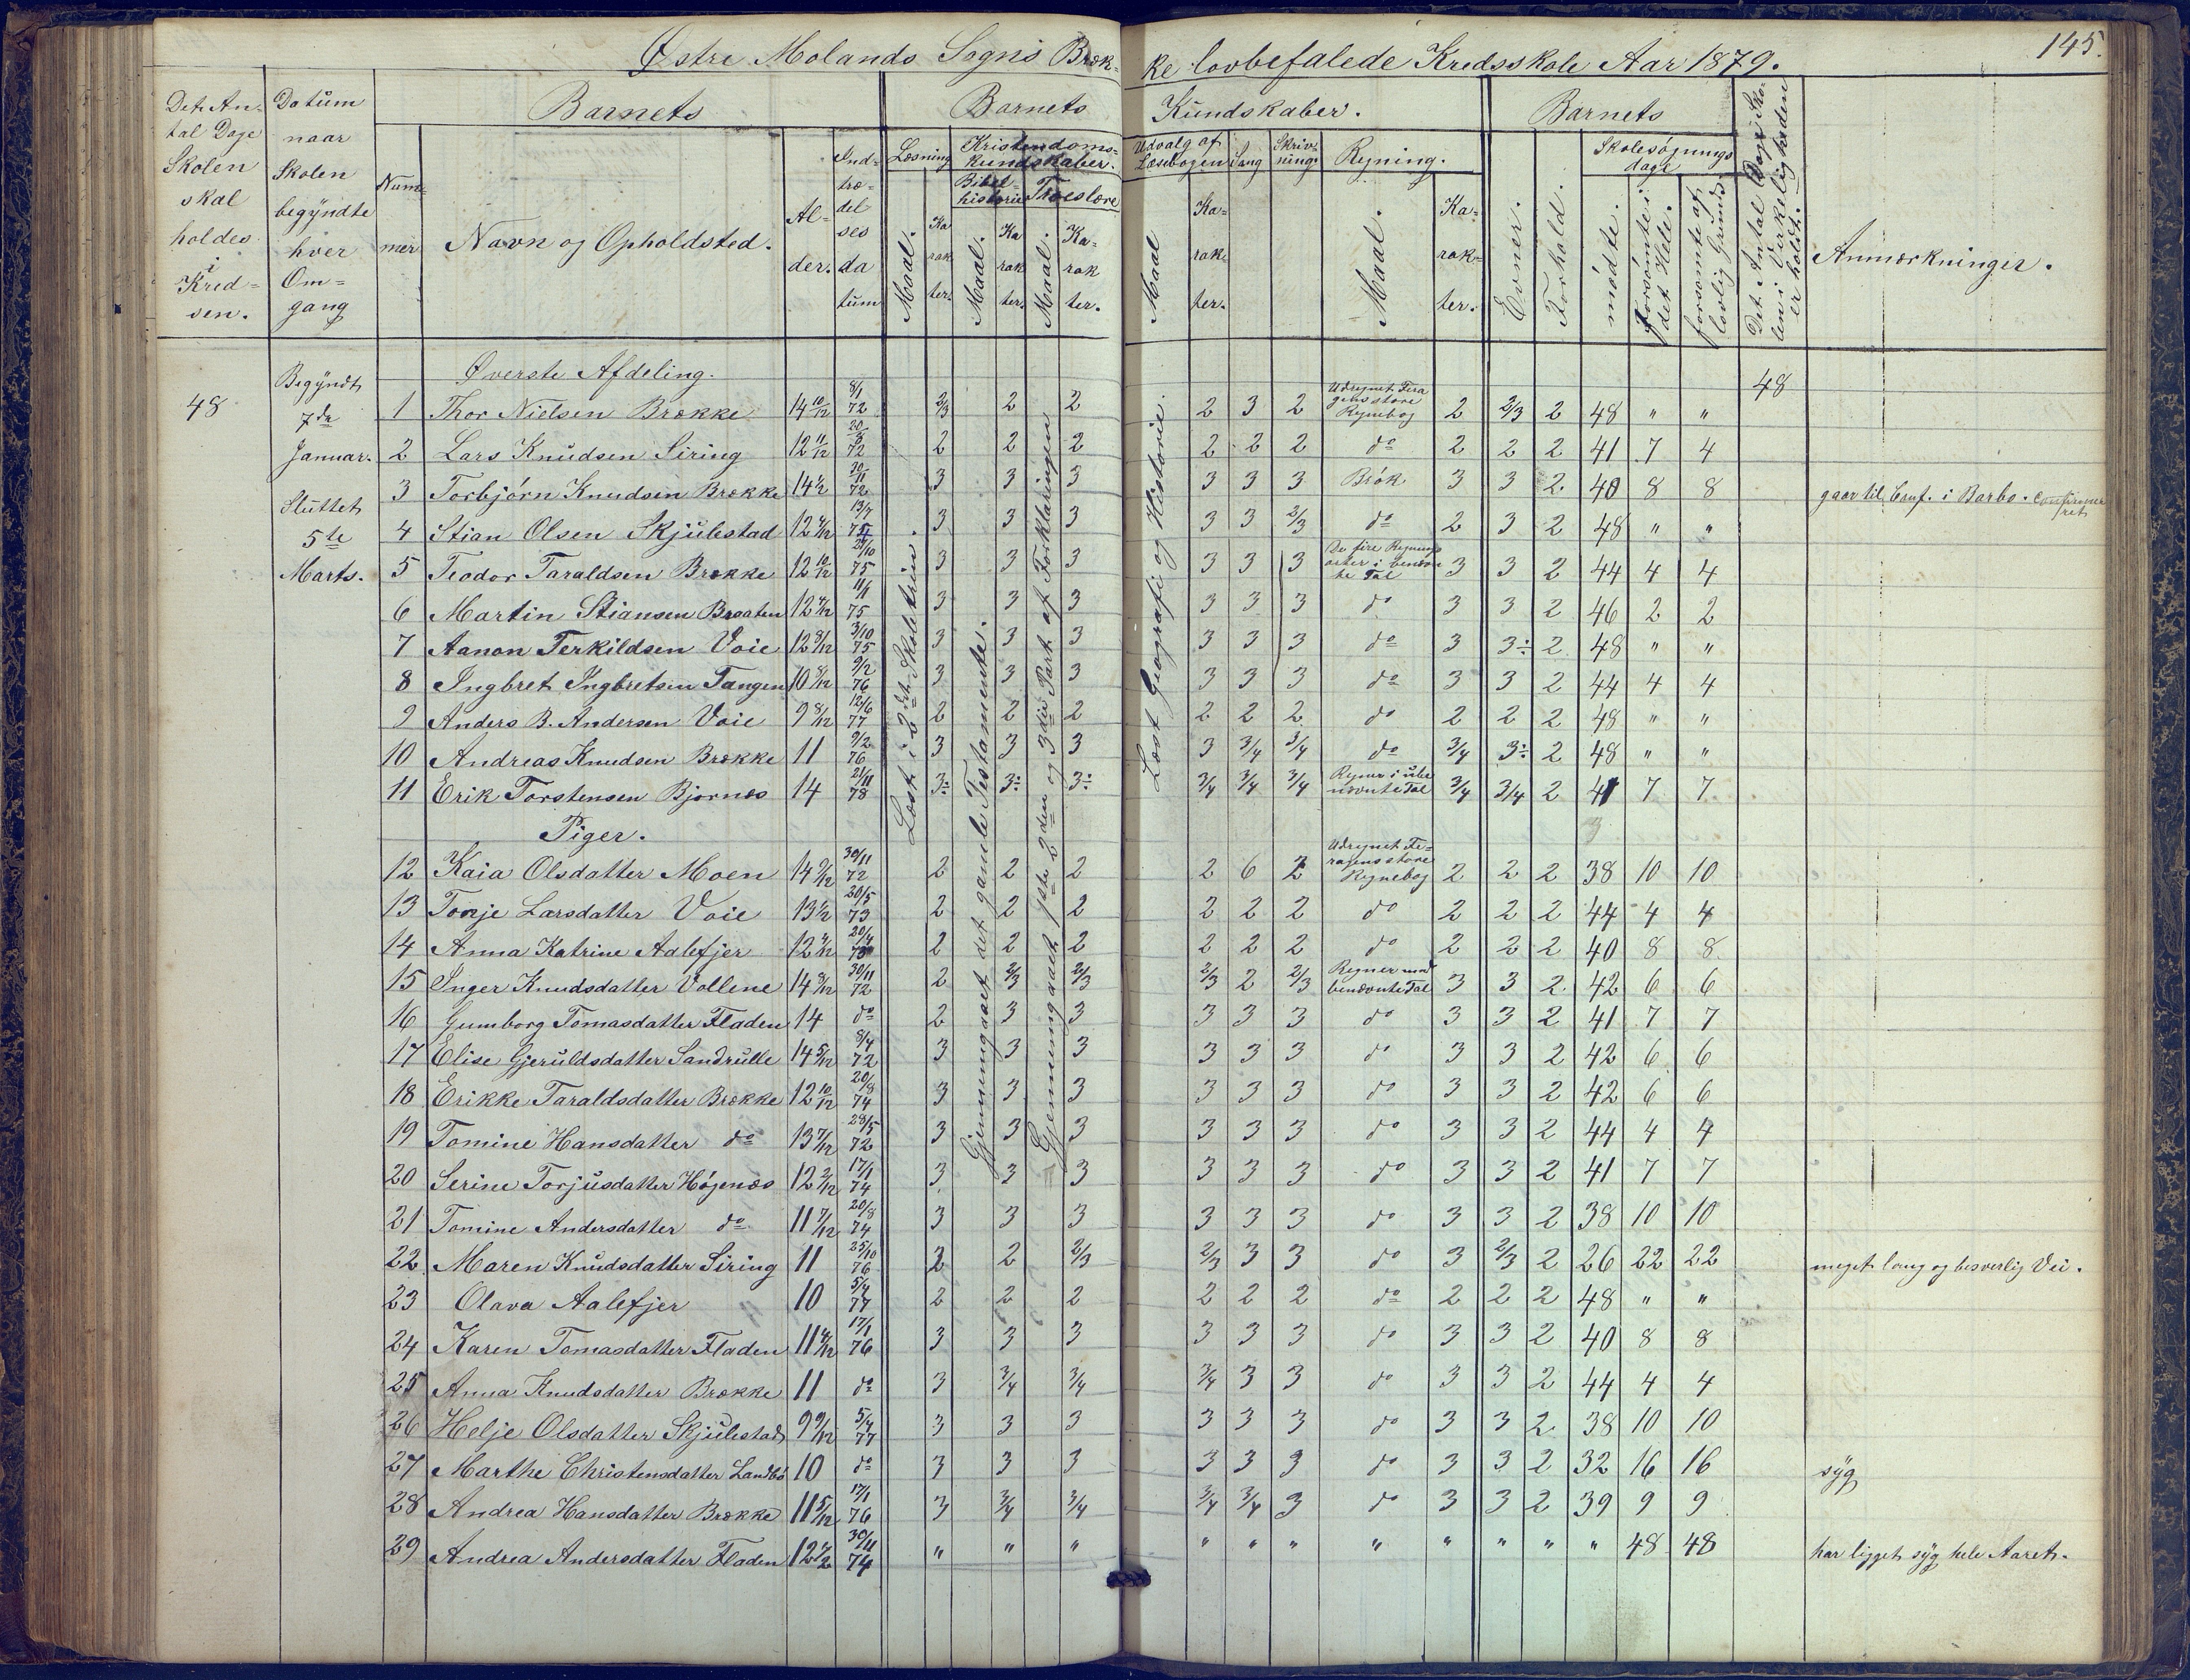 Østre Molands Sogns Brække lovbefalede Kredsskole Aar 1879.
145.
Det An- tal Dage Skolen skal holdes i Kredsen.
Datum naar Skolen begyndte hver Omgang
Barnets
Nummer
Navn og Opholdsted.
Alder.
Indtrædelses datum
Barnets Kundskaber.
Læsning
Maal.
Karakter.
Kristendomskundskaber.
Bibelhistorie
Maal.
Karakter.
Troeslære
Maal.
Karakter.
Udvalg af Læsebogen
Maal
Karakter.
Sang
Skrivning.
Regning.
Maal.
Karakter.
Barnets
Evner.
Forhold.
Skolesøgningsdage
mødte.
forsømte i det Hele.
forsømte af lovlig Grund.
Det Antal Dage Skolen i Virkeligheden er holdt.
Anmærkninger.
48
Begyndt 7de Januar.
Sluttet 5te Marts.
48
Læst i 2det Skoletrin.
Gjennemgaaet det gamle Testamente.
Gjennemgaaet 1ste 2den og 3die Part af Forklaringen
Læst Geografi og Historie.
Øverste Afdeling.
1 Thor Nielsen Brække 14 10/12 8/1 72 2/3 2 2 2 3 2 Udregnet Feragens store Regnebog 2 2/3 2 48 " "
2 Lars Knudsen Siring 12 11/12 72 2 2 2 2 2 2 do 2 2 2 41 7 4
3 Torbjørn Knudsen Brække 14 1/2 30/11 72 3 3 3 3 3 3 Brøk 3 3 2 40 8 8 gaar til Conf. i Barbo. confirmeret
4 Stian Olsen Skjulestad 12 13/7 3 3 3 3 3 2/3 do 2 3 2 48 " "
5 Teodor Taraldsen Brække 12 10/12 75 3 3 3 3 3 3 De fire Regningsarter i benævnte Tal 3 3 2 44 4 4
6 Martin Stiansen Braaten 12 75 3 3 3 3 3 3 do 3 3 2 46 2 2
7 Aanon Terkildsen Voie 12 8/12 3/10 75 3 3 3 3 3 3 do 3 3÷ 2 48 " "
8 Ingbret Ingbretsen Tangen 10 8/12 9/2 76 3 3 3 3 3 3 do 3 3 2 44 4 4
9 Anders B. Andersen Voie 9 8/12 12/6 77 2 2 2 2 2 2 do 2 2 2 48 " "
10 Andreas Knudsen Brække 11 9/2 76 3 3 3 3 3/4 3/4 do 3/4 3÷ 2 48 " "
11 Erik Torstensen Bjornæs 14 21/11 78 3÷ 3÷ 3÷ 3/4 3/4 3/4 Regner i ubenævnte Tal 3/4 3/4 2 41 7 7
Piger.
12 Kaia Olsdatter Moen 14 9/12 30/11 72 2 2 2 2 6 2 Udregnet Feragens store Regnebog 2 2 2 38 10 10
13 Tonje Larsdatter Voie 13 1/2 20/5 73 2 2 2 2 2 2 do 2 2 2 44 4 4
14 Anna Katrine Aalefjer 12 2 2 2 2 2 2 do 2 2 2 40 8 8
15 Inger Knudsdatter Vollene 14 8/12 30/11 72 2 2/3 2/3 2/3 2 2/3 Regner med benævnte Tal 3 3 2 42 6 6
16 Gumborg Tomasdatter Fladen 14 do 2 3 3 3 3 3 do 3 3 2 41 7 7
17 Elise Gjeruldsdatter Sandrulle 14 5/12 8/4 72 3 3 3 3 3 3 do 3 3 2 42 6 6
18 Erikke Taraldsdatter Brække 12 10/12 20/8 74 3 3 3 3 3 3 do 3 3 2 42 6 6
19 Tomine Hansdatter do 13 7/12 28/5 72 3 3 3 3 3 3 do 3 3 2 44 4 4
20 Serine Torjusdatter Høgenæs 12 2/12 17/1 74 3 3 3 3 3 3 do 3 3 2 41 7 7
21 Tomine Andersdatter do 11 7/12 20/8 74 3 3 3 3 3 3 do 3 3 2 38 10 10
22 Maren Knudsdatter Siring 11 25/10 76 2 2 2/3 2/3 3 3 do 3 2/3 2 26 22 22 meget lang og besverlig Vei.
23 Olava Aalefjer 10 5/4 77 2 2 2 2 2 2 do 2 2 2 48 " "
24 Karen Tomasdatter Fladen 11 17/1 76 3 3 3 3 3 3 do 3 3 2 40 8 8
25 Anna Knudsdatter Brække 11 do 3 3/4 3/4 3/4 3 3 do 3 3 2 44 4 4
26 Helje Olsdatter Skjulestad 9 9/12 5/4 77 3 3 3 3 3 3 do 3 3 2 38 10 10
27 Marthe Christensdatter Landbø 10 do 3 3 3 3 3 3 do 3 3 2 32 16 16 syg
28 Andrea Hansdatter Brække 11 5/12 17/1 76 3 3/4 3/4 3/4 3/4 3 do 3 3 2 39 9 9
29 Andrea Andersdatter Fladen 12 30/11 74 " " " " " " " " " " " 48 48 har ligget syg hele Aaret.